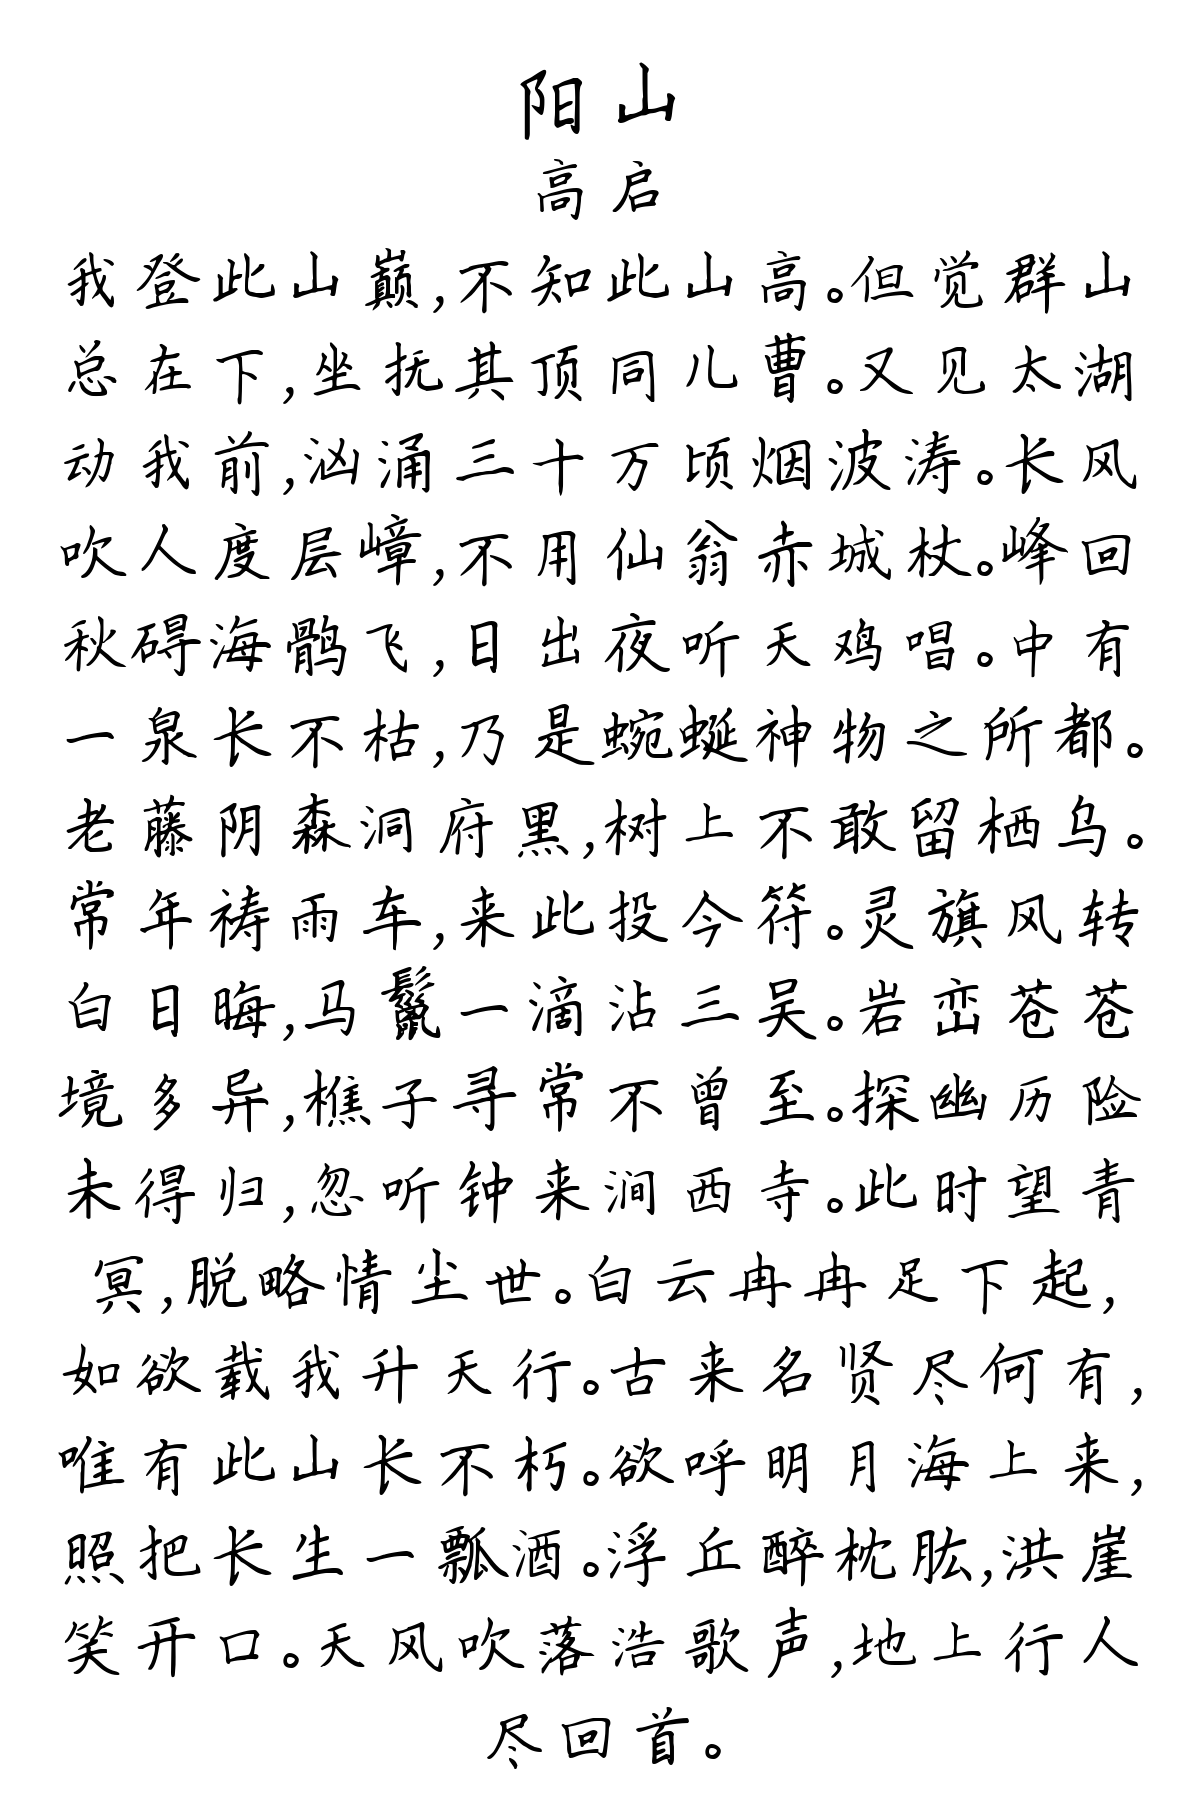 阳山
高启
我登此山巅,不知此山高。但觉群山
总在下,坐抚其顶同儿曹。又见太湖
动我前,汹涌三十万顷烟波涛。长风
吹人度层嶂,不用仙翁赤城杖。峰回
秋碍海鹘飞,日出夜听天鸡唱。中有
一泉长不枯,乃是蜿蜒神物之所都。
老藤阴森洞府黑,树上不敢留栖乌。
常年祷雨车,来此投今符。灵旗风转
白日晦,马鬣一滴沾三吴。岩峦苍苍
境多异,樵子寻常不曾至。探幽历险
未得归,忽听钟来涧西寺。此时望青
冥,脱略情尘世。白云冉冉足下起,
如欲载我升天行。古来名贤尽何有,
唯有此山长不朽。欲呼明月海上来,
照把长生一瓢酒。浮丘醉枕肱,洪崖
笑开口。天风吹落浩歌声,地上行人
尽回首。